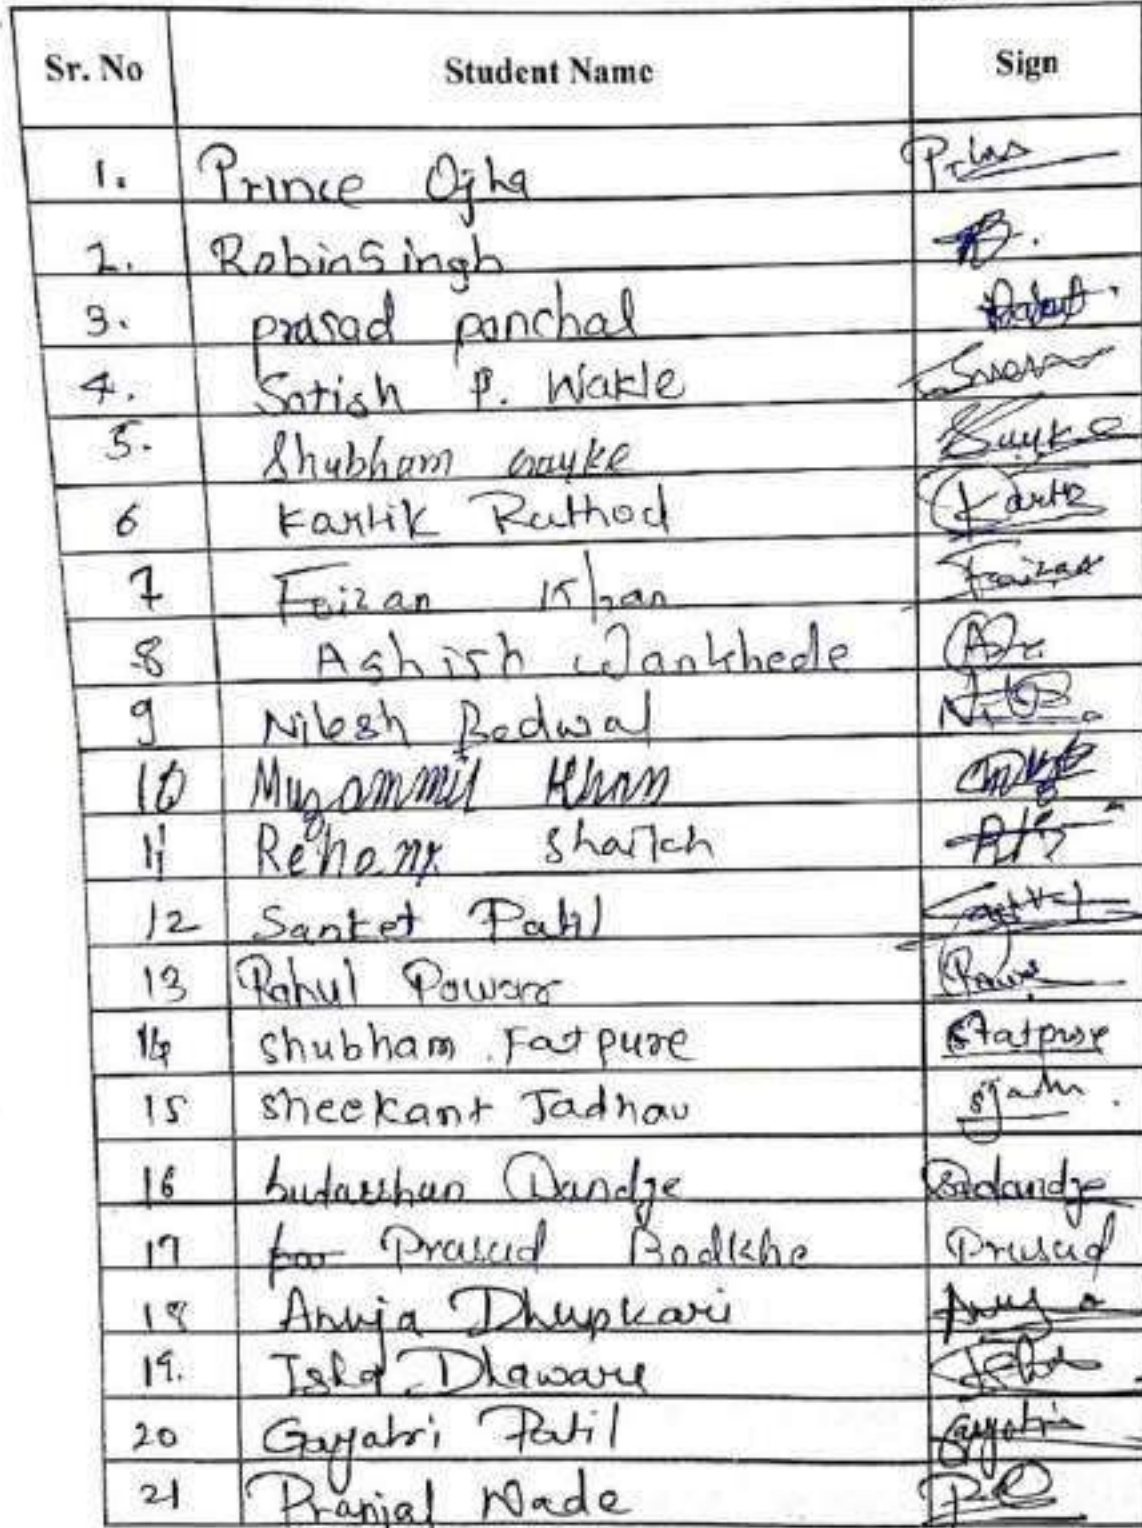 Sr. No Student Name Sign
1. Prince Ojha
2. Robin Singh
3. prasad panchal
4. Satish P. Wakle
5. Shubham Gayke Gayke
6 Kartik Rathod Kartik
7 Faizan Khan Faizan
8 Ashish Wankhede
9 Nilesh Bedwal
10 Muzammil Khan
11 Rehan Shaikh
12 Sanket Patil
13 Rahul Powar
14 Shubham Fatpure Sfatpure
15 Sheekant Jadhav
16 Sudarshan Dandge Sdandge
17 Prasad Bodkhe Prasad
18 Anuja Dhupkari Anuja
19. Isha Dhaware Isha
20 Gayatri Patil Gayatri
21 Pranjal Wade